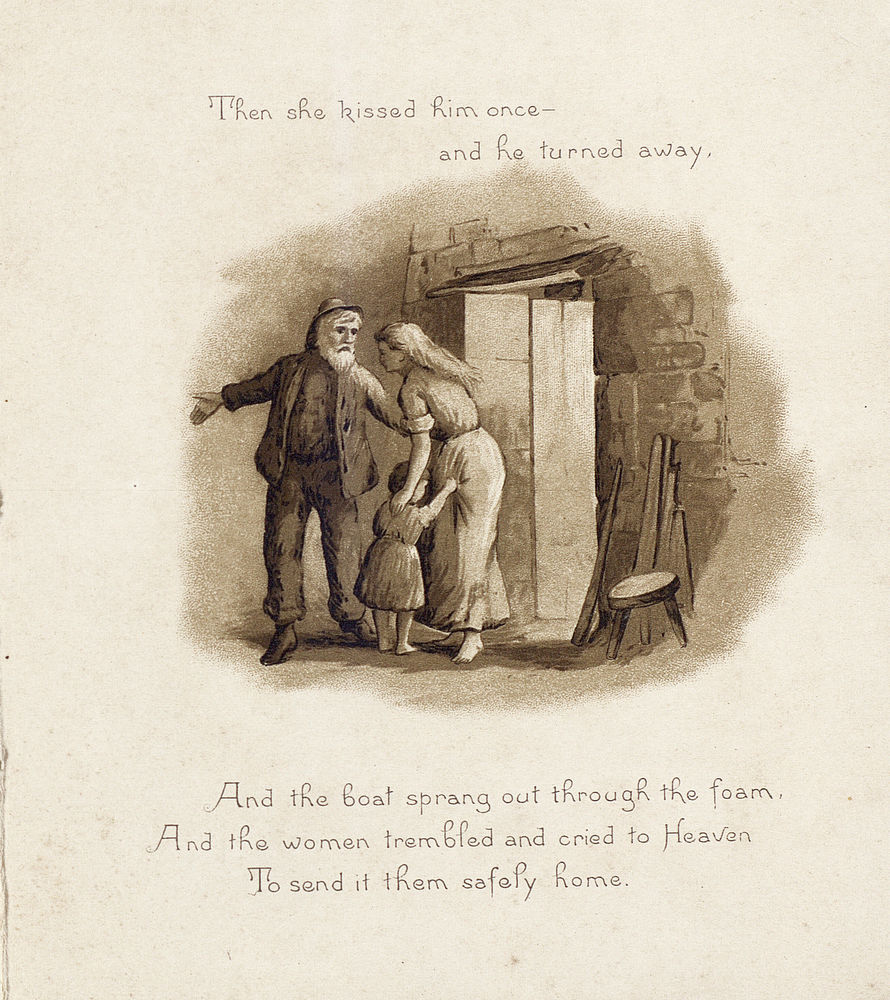 Then she kissed him once—
and he turned away,
And the boat sprang out through the foam,
And the women trembled and cried to Heaven
To send it them safely home.